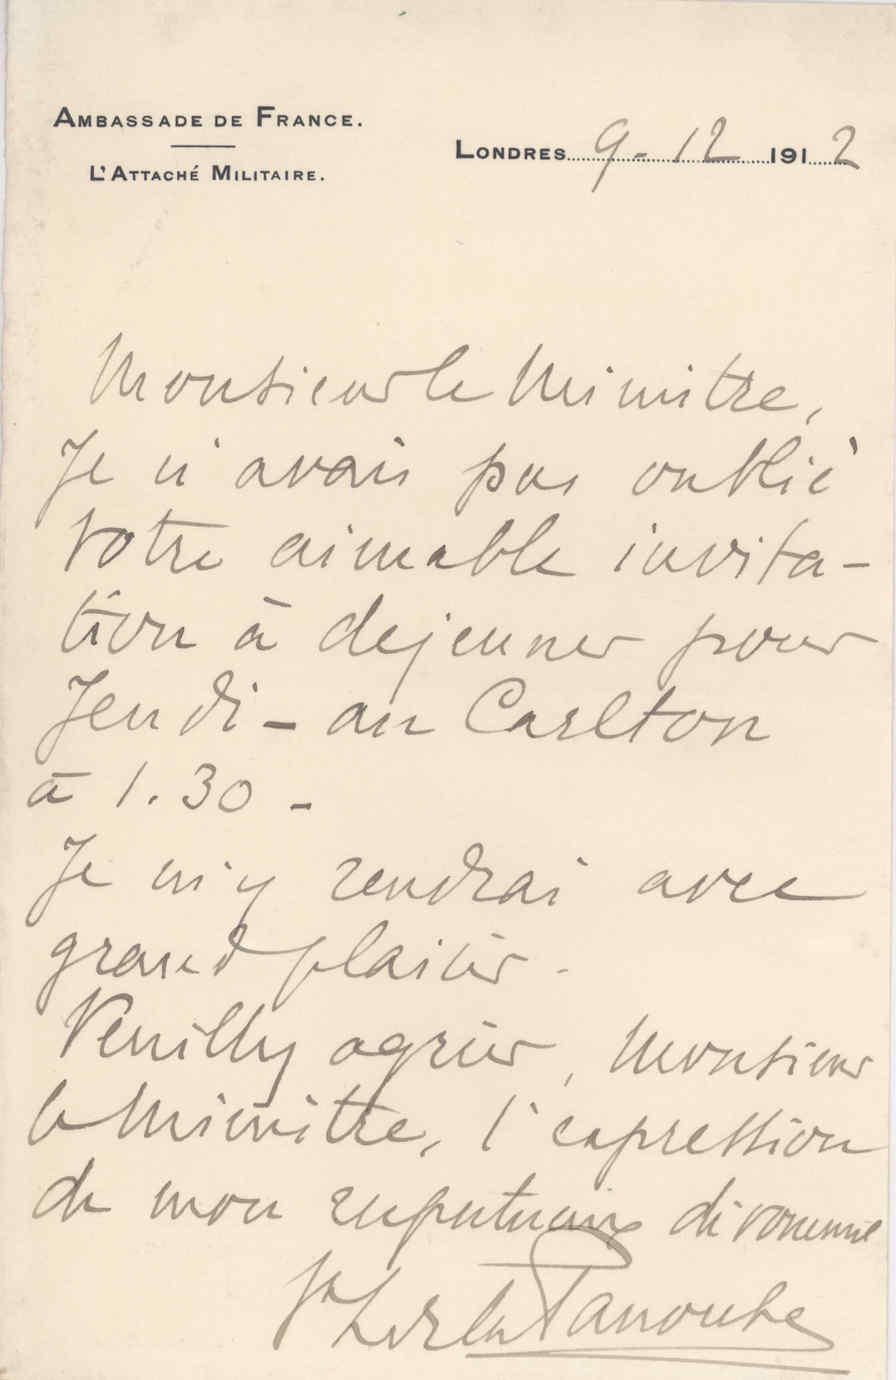 AMBASSADE DE FRANCE.
L'ATTACHÉ MILITAIRE.
LONDRES 9-12 1912
Monsieur le Ministre,
Je n'avais pas oublié
votre aimable invita-
tion à dejeuner pour
Jeudi - au Carlton
à 1.30 -
Je m'y rendrai avec
grand plaisir.
Veuillez agréer, Monsieur
le Ministre, l'expression
de mon respectueux dévouement
de la Panouse